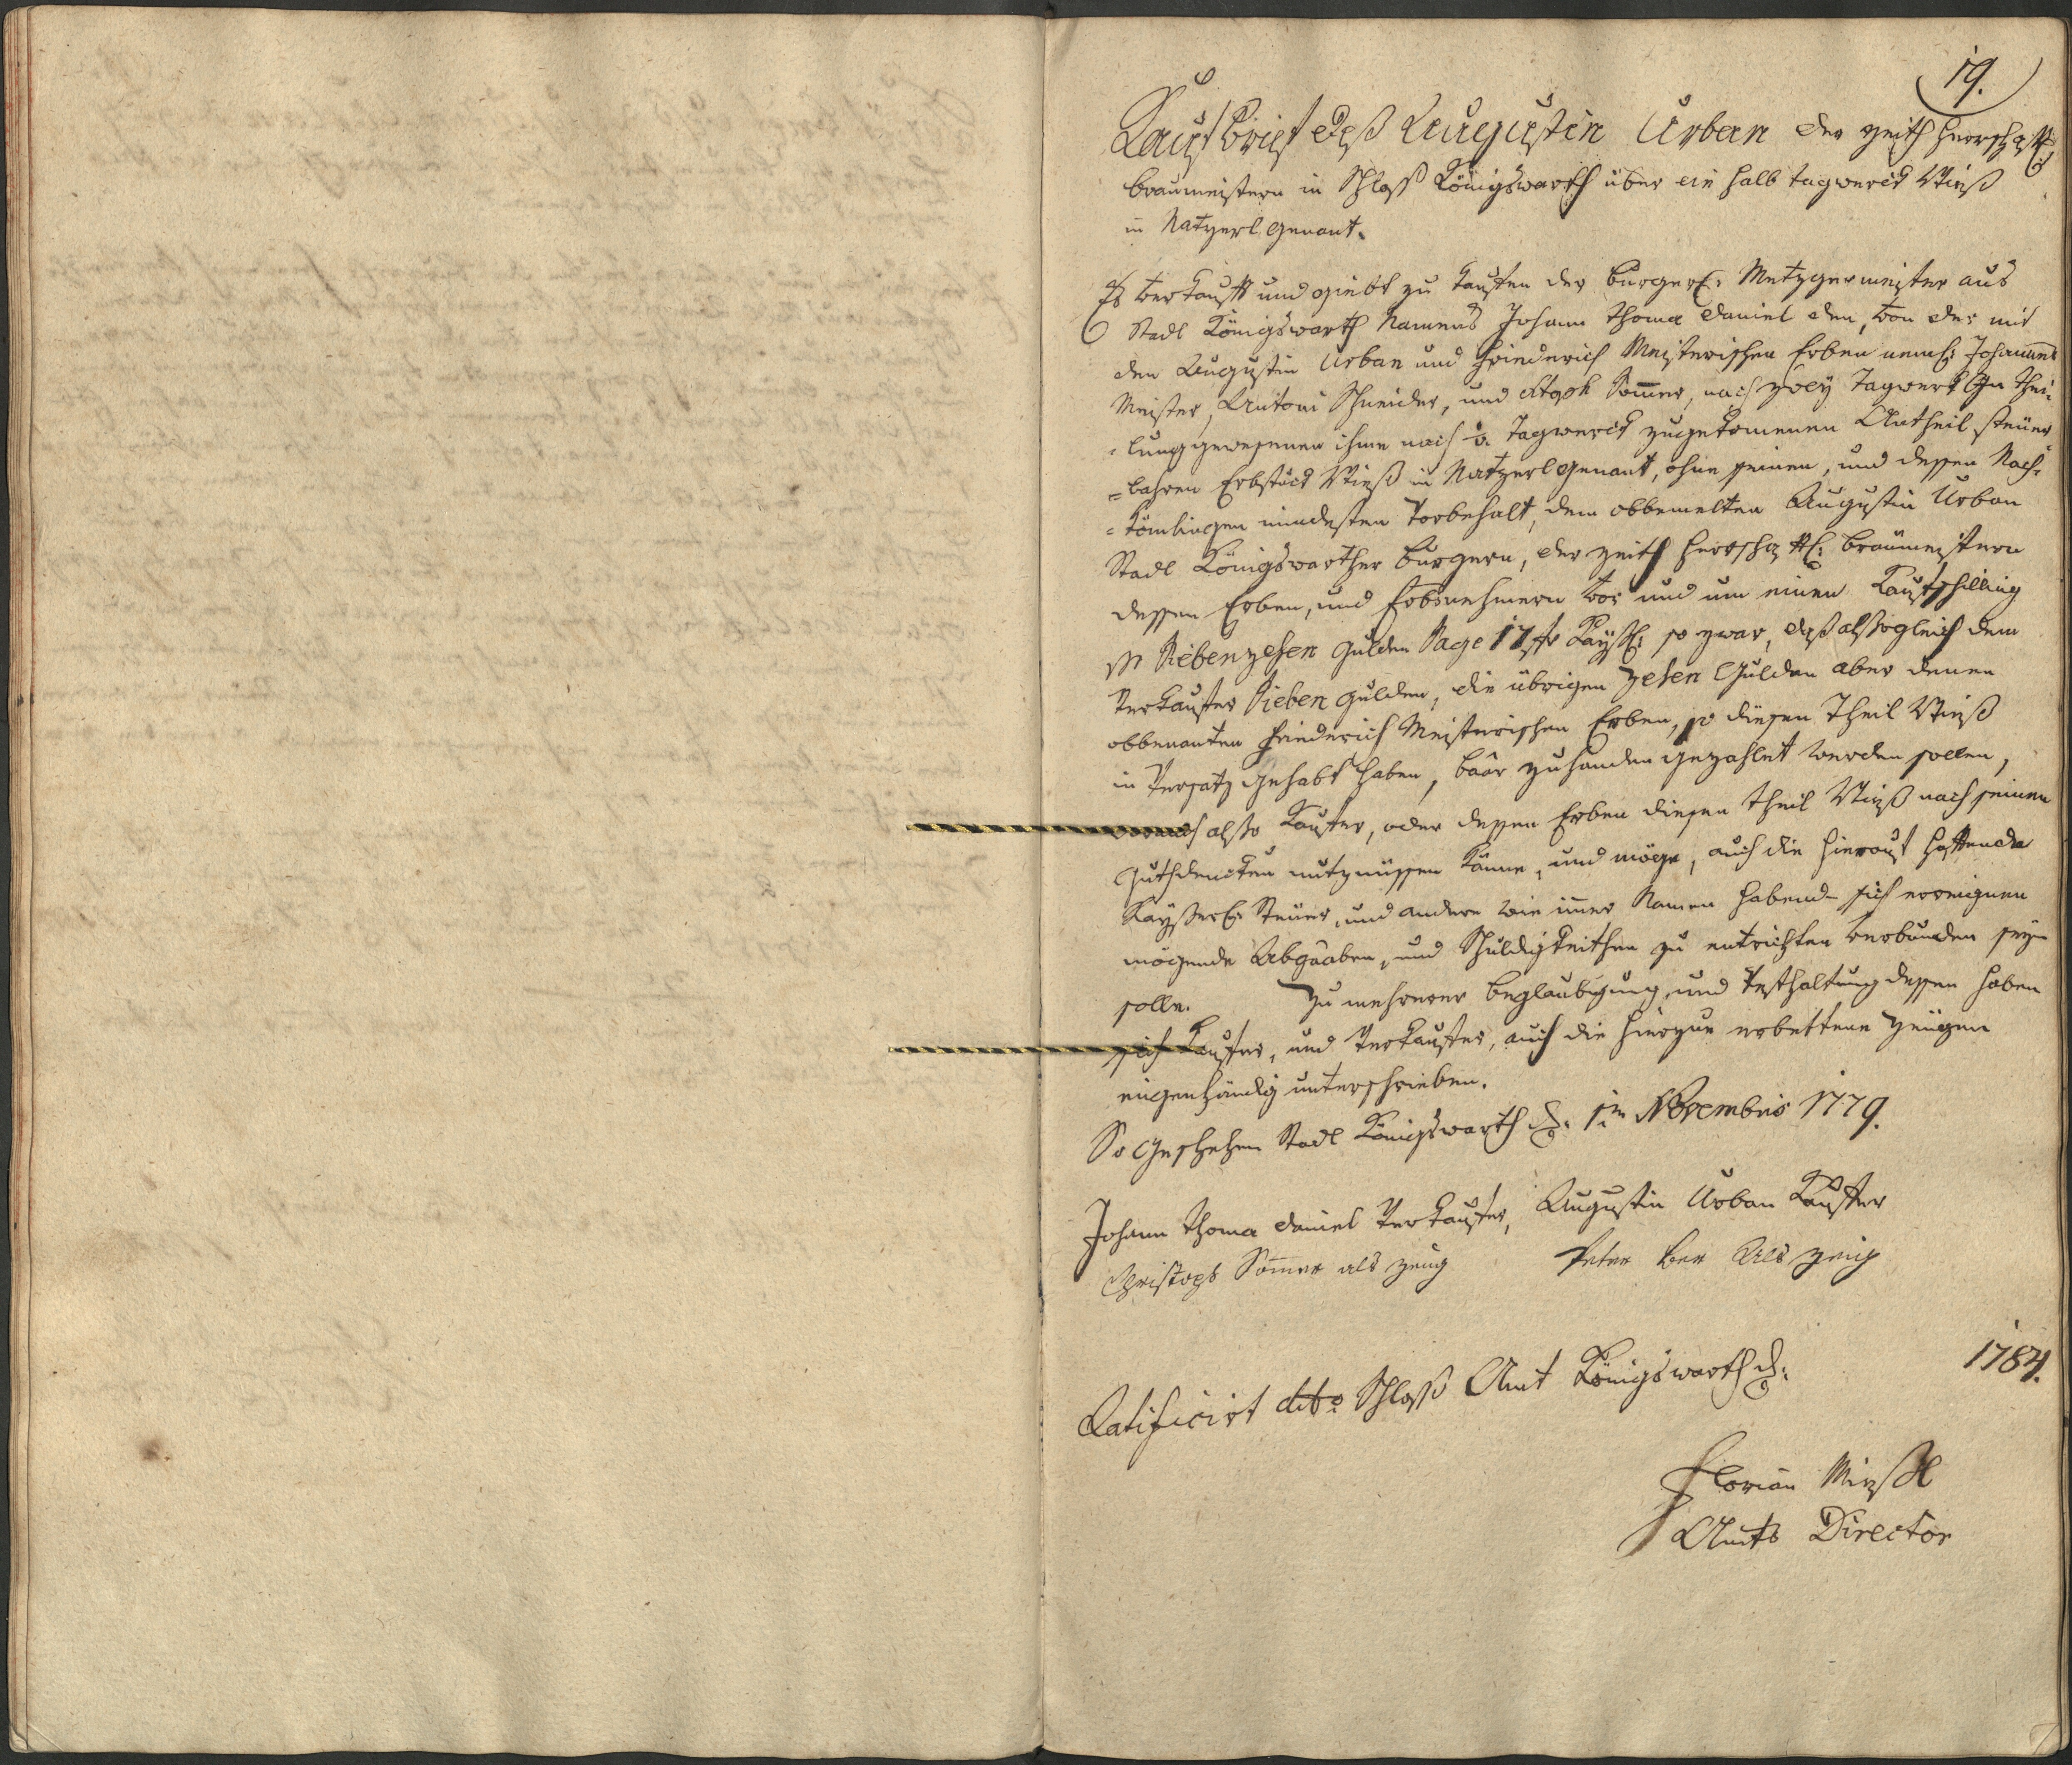 19.
Kauf Brief deß Augustin Urban der zeith herrschaftl:
braumeistern in Schloß Königswarth über ein halb tagwerck Wieß
in Natzerl genant.
Es verkaufft und giebt zu kauffen der burgerl: Metzgermeister aus
Stadl Königswarth Namens Johann Thoma Daniel den, von der mit
den Augustin Urban und Friederich Meisterischen Erben neml: Johannes
Meister, Antoni Schneider, und Stoph Som̄er, nach zweÿ Tagwerk in thei-
-lung gewesenen ihme nach ½. Tagwerck zugekomenen Antheil steuer-
=bahren Erbstuck Wieß in Natzerl genant, ohne seinen, und dessen Nach-
=kömlingen mindesten Vorbehalt, dem obbemelten Augustin Urban
Stadl Königswarther burgern, der zeith herrschaftl: braumeistern
dessen Erben, und Erbsnehmern vor und um einen Kaufschilling
pr Siebenzehen gulden Sage 17 fr Kaÿßl: so zwar, daß alsogleich dem
Verkaufer Sieben gulden, die übrigen zehen Gulden aber denen
obbenanten Friederich Meisterischen Erben, so diesen Theil Wieß
in Versatz gehabt haben, baar zuhanden gezahlet werden sollen,
wornach also Kaufer, oder dessen Erben diesen theil Wieß nach seinen
Guthdencken nutznüssen könne, und möge, auch die hierauf haftende
Kaÿßerl: Steuer, und andere wie im̄er Namen habend- sich ereignen
mögende Abgaaben, und Schuldigkeithen zu entrichten verbunden seÿn
solle. Zu mehrerer beglaubigung, und Vesthaltung dessen haben
sich Kaufer, und Verkaufer, auch die hierzue erbettene Zeügen
eigenhändig unterschrieben.
So Geschehen Stadl Königswarth d: 1ten Novembris 1779.
Johann Thoma Daniel Verkaufer, Augustin Urban Kauffer
Christoph Som̄er als zeug Peter Ber als zeug
Ratificirt dto Schloß Amt Königswarth d: 1784.
Florian Mießl
Amts Director